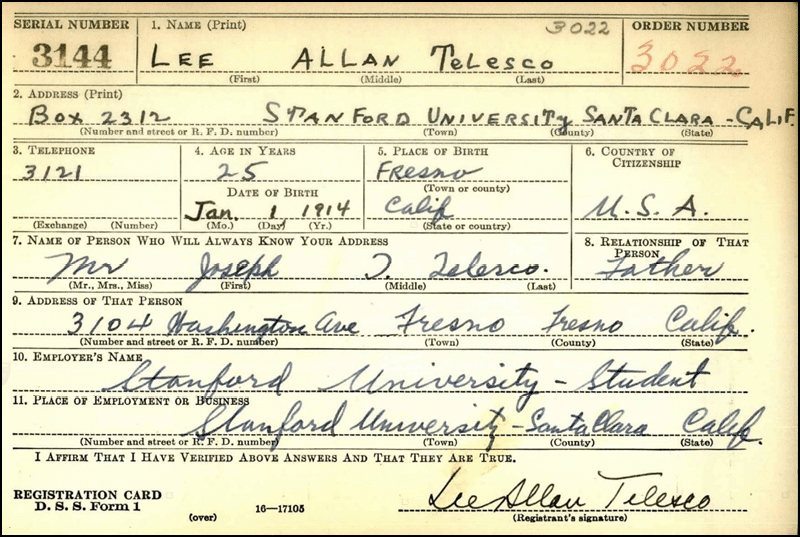 SERIAL NUMBER 1. NAME (Print) 3022 ORDER NUMBER
3144 LEE ALLAN TELESCO 3022
(First) (Middle) (Last)
2. ADDRESS (Print)
Box 2312 STANFORD UNIVERSITY SANTA CLARA - CALIF.
(Number and street or R. F. D. number) (Town) (County) (State)
3. TELEPHONE 4. AGE IN YEARS 5. PLACE OF BIRTH 6. COUNTRY OF CITIZENSHIP
3121 25 Fresno
DATE OF BIRTH (Town or county)
Jan. 1 1914 Calif U. S. A.
(Exchange) (Number) (Mo.) (Day) (Yr.) (State or country)
7. NAME OF PERSON WHO WILL ALWAYS KNOW YOUR ADDRESS 8. RELATIONSHIP OF THAT PERSON
Mr Joseph Telesco. Father
(Mr., Mrs., Miss) (First) (Middle) (Last)
9. ADDRESS OF THAT PERSON
3104 Washington Ave Fresno Fresno Calif.
(Number and street or R. F. D. number) (Town) (County) (State)
10. EMPLOYER'S NAME
Stanford University - Student
11. PLACE OF EMPLOYMENT OR BUSINESS
Stanford University - Santa Clara Calif.
(Number and street or R. F. D. number) (Town) (County) (State)
I AFFIRM THAT I HAVE VERIFIED ABOVE ANSWERS AND THAT THEY ARE TRUE.
REGISTRATION CARD Lee Allan Telesco
D. S. S. Form 1 (over) 16—17105 (Registrant's signature)